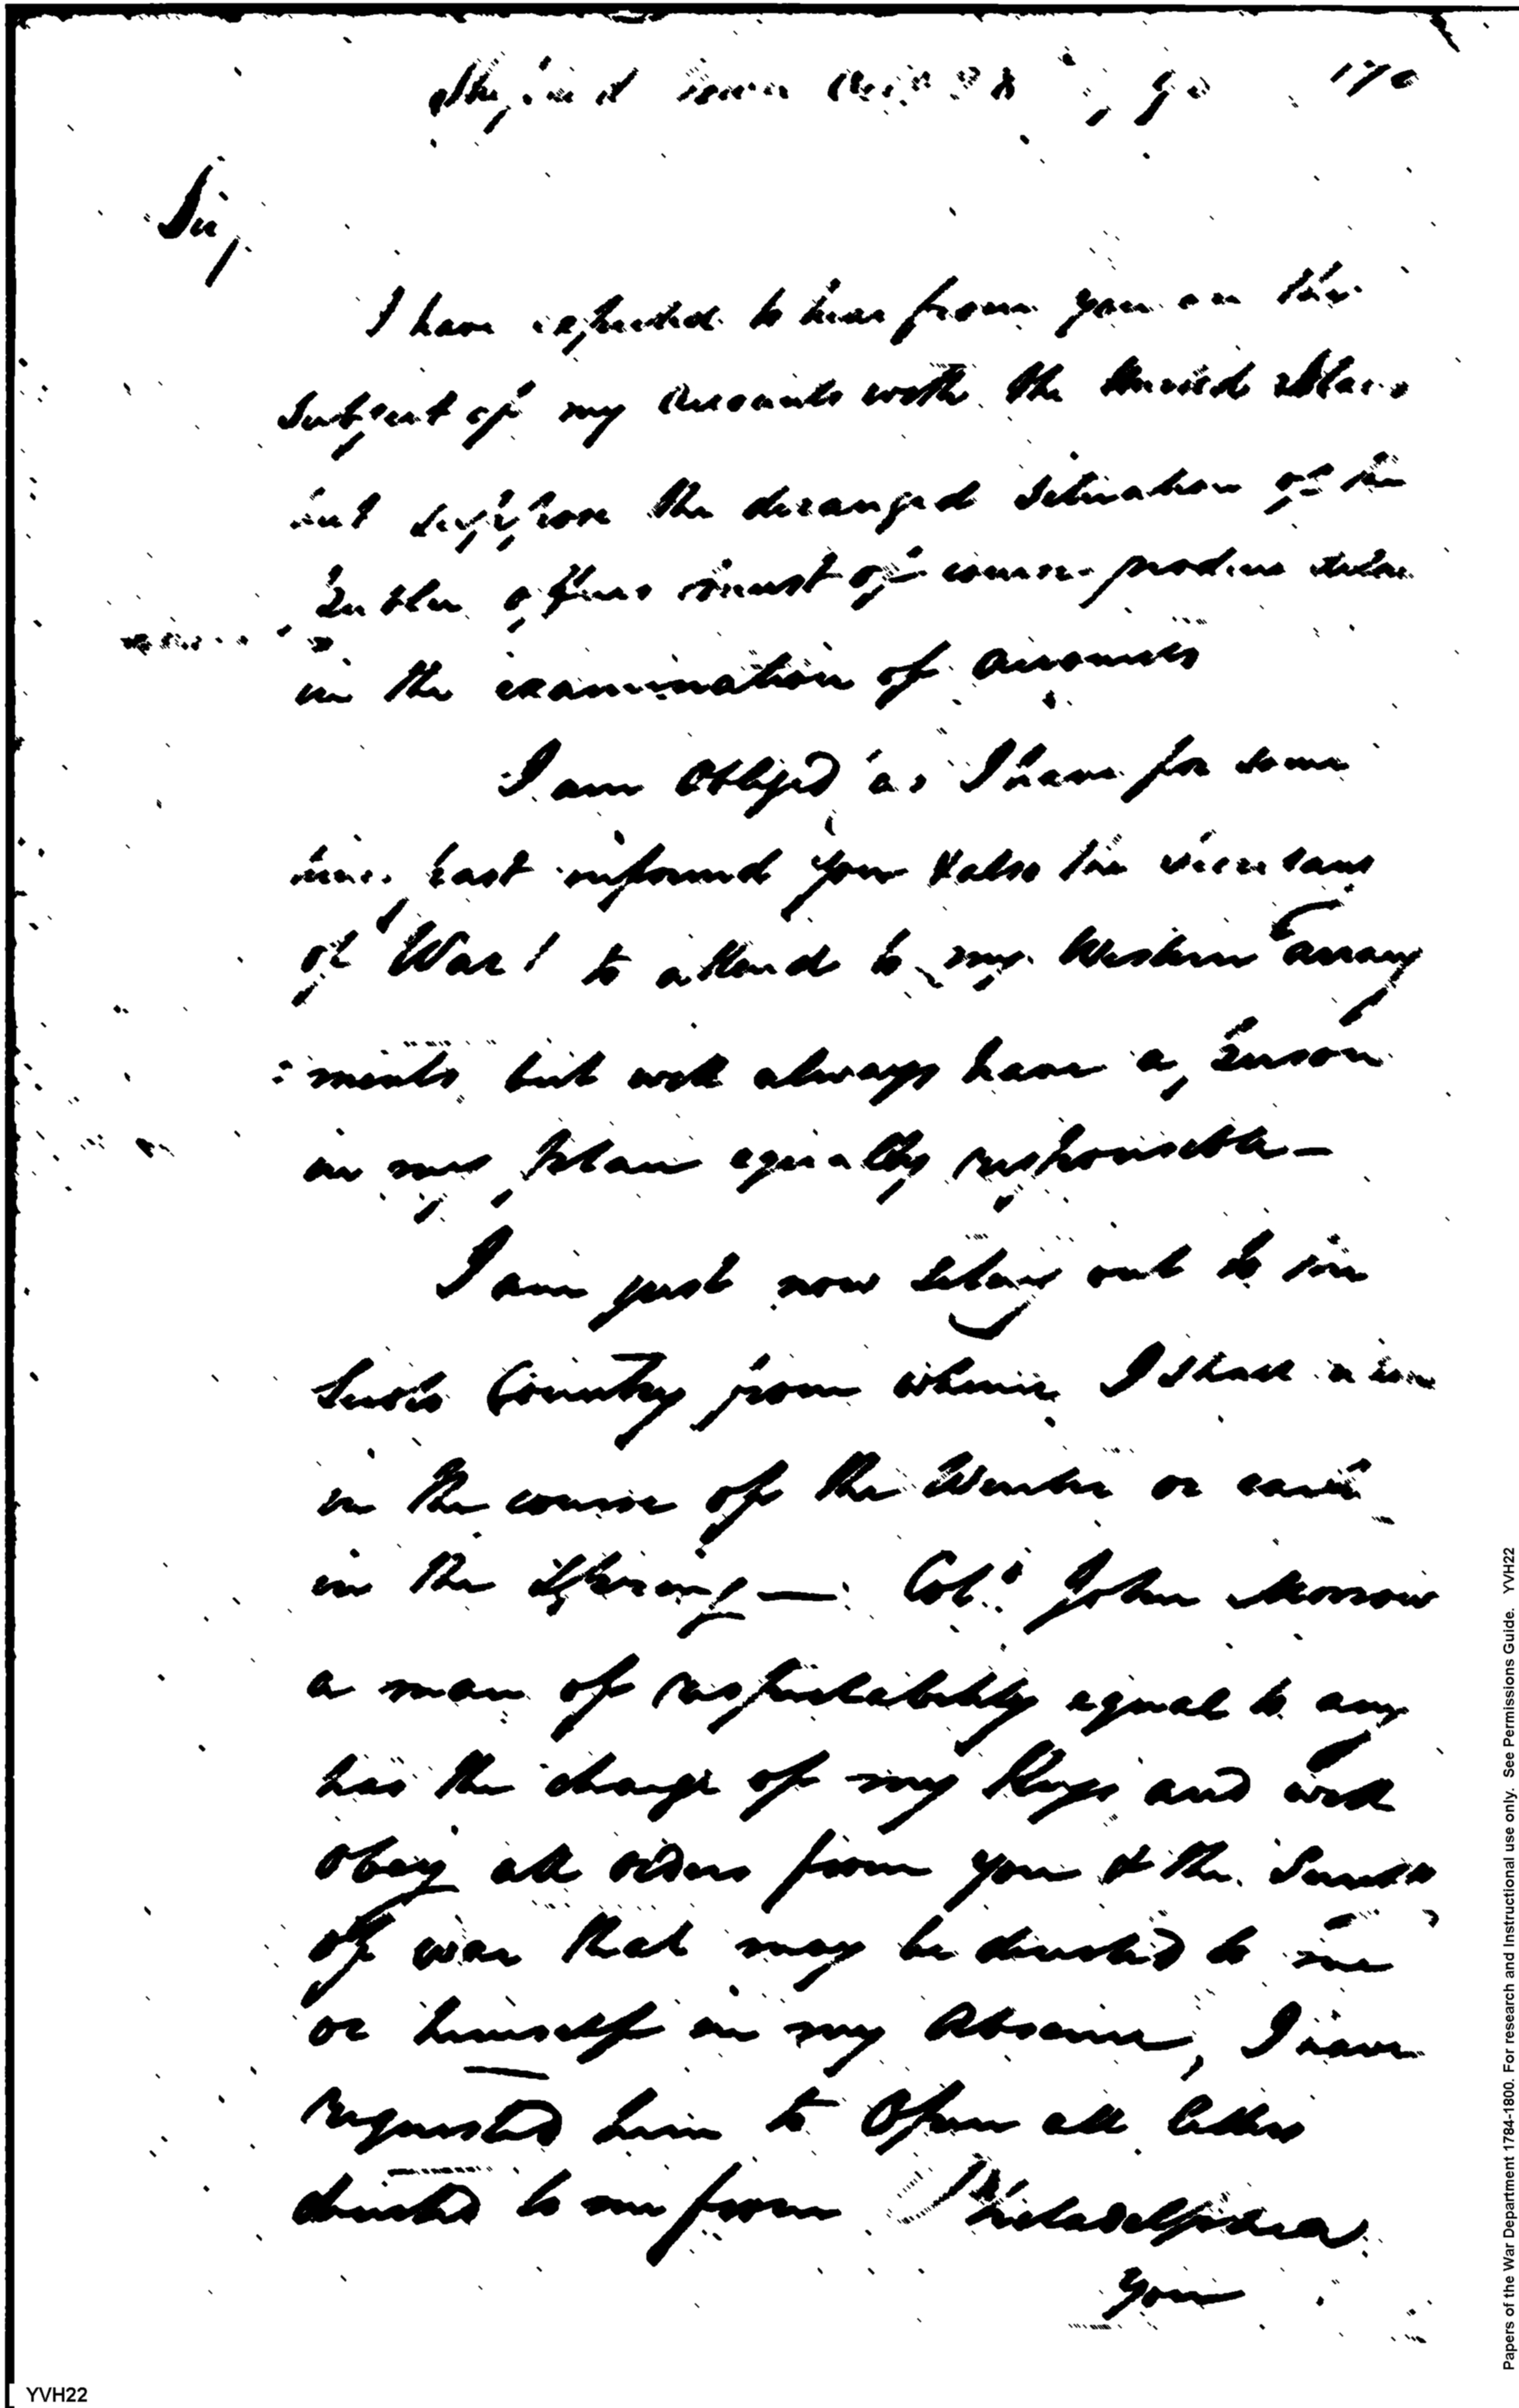 Sir,
I have expected to hear from you on the
subject of my Accounts with the United States
but suppose the deranged situation of the
Public offices must of course produce delay
in the examination of accounts
I am Obliged as I have for some
time past informd you & also the Secretary
of War to attend to my Western arrange
:ments, but will always have a person
in my place equally responsible —
I am just now seting out to the
Country from whence I shall return
in the course of the Winter or early
in the Spring — Col.º John Morrow
a man of respectability equal to any
has the charge of my Keys and will
obey all orders from you & the
of war that may be directed to me
or himself in my Absence, I have
requested him to Open all letters
directed to me from Philadelphia
Your
YVH22
Papers of the War Department 1784-1800. For research and Instructional use only. See Permissions Guide. YVH22